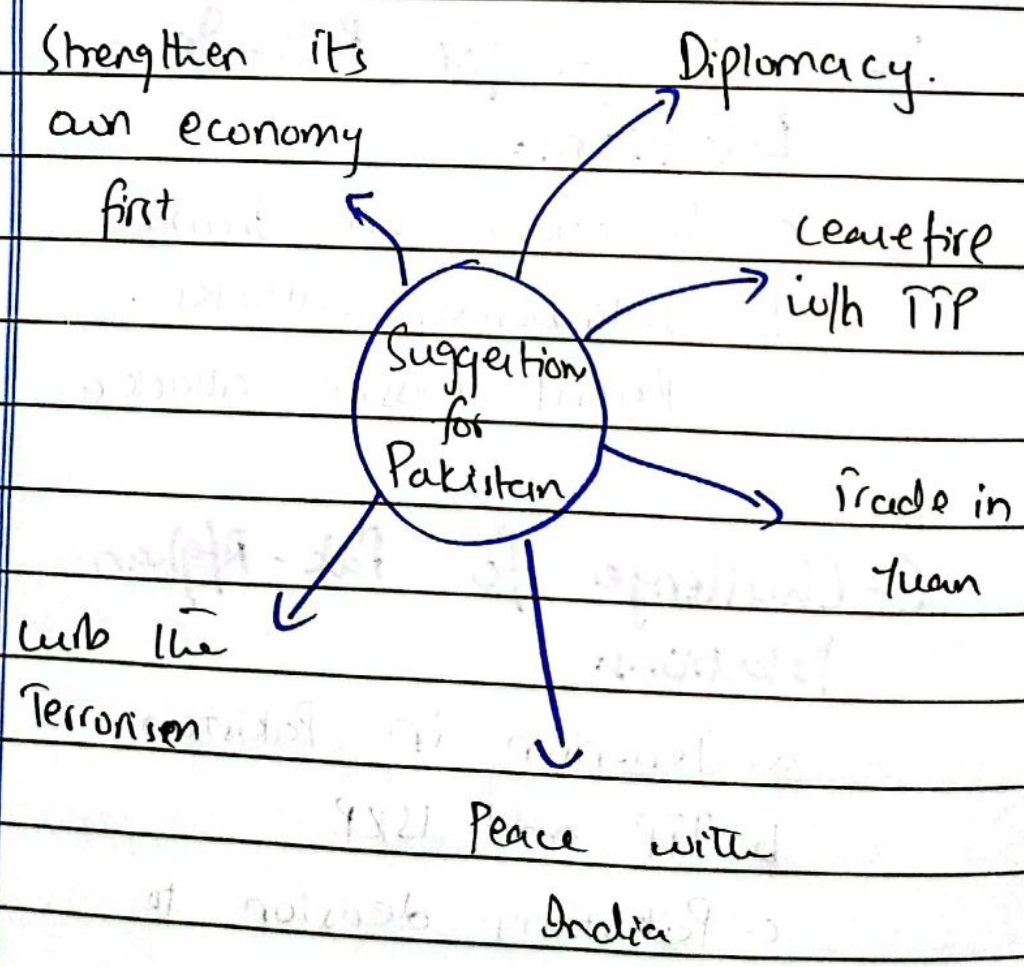 Strengthen its
own economy
first
Diplomacy.
Ceasefire
with TTP
Suggestions
for
Pakistan
Trade in
Yuan
Curb the
Terrorism
Peace with
India